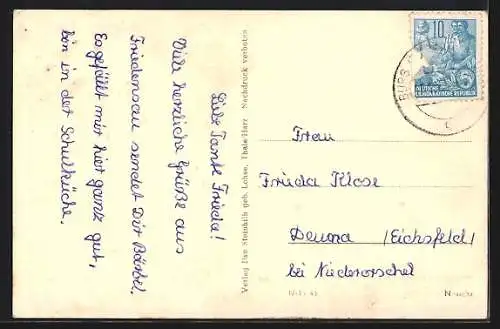 Liebe Tante Frieda!
Viele herzliche Grüße aus
Friedensau sendet Dir Bärbel.
Es gefällt mir hier ganz gut,
bin in der Schulküche.
Verlag Ilse Steinhilb geb. Lohse, Thale-Harz Nachdruck verboten
10
DEUTSCHE
DEMOKRATISCHE REPUBLIK
BURG
c
Frau
Frieda Klose
Deuna (Eichsfeld)
bei Niederorschel